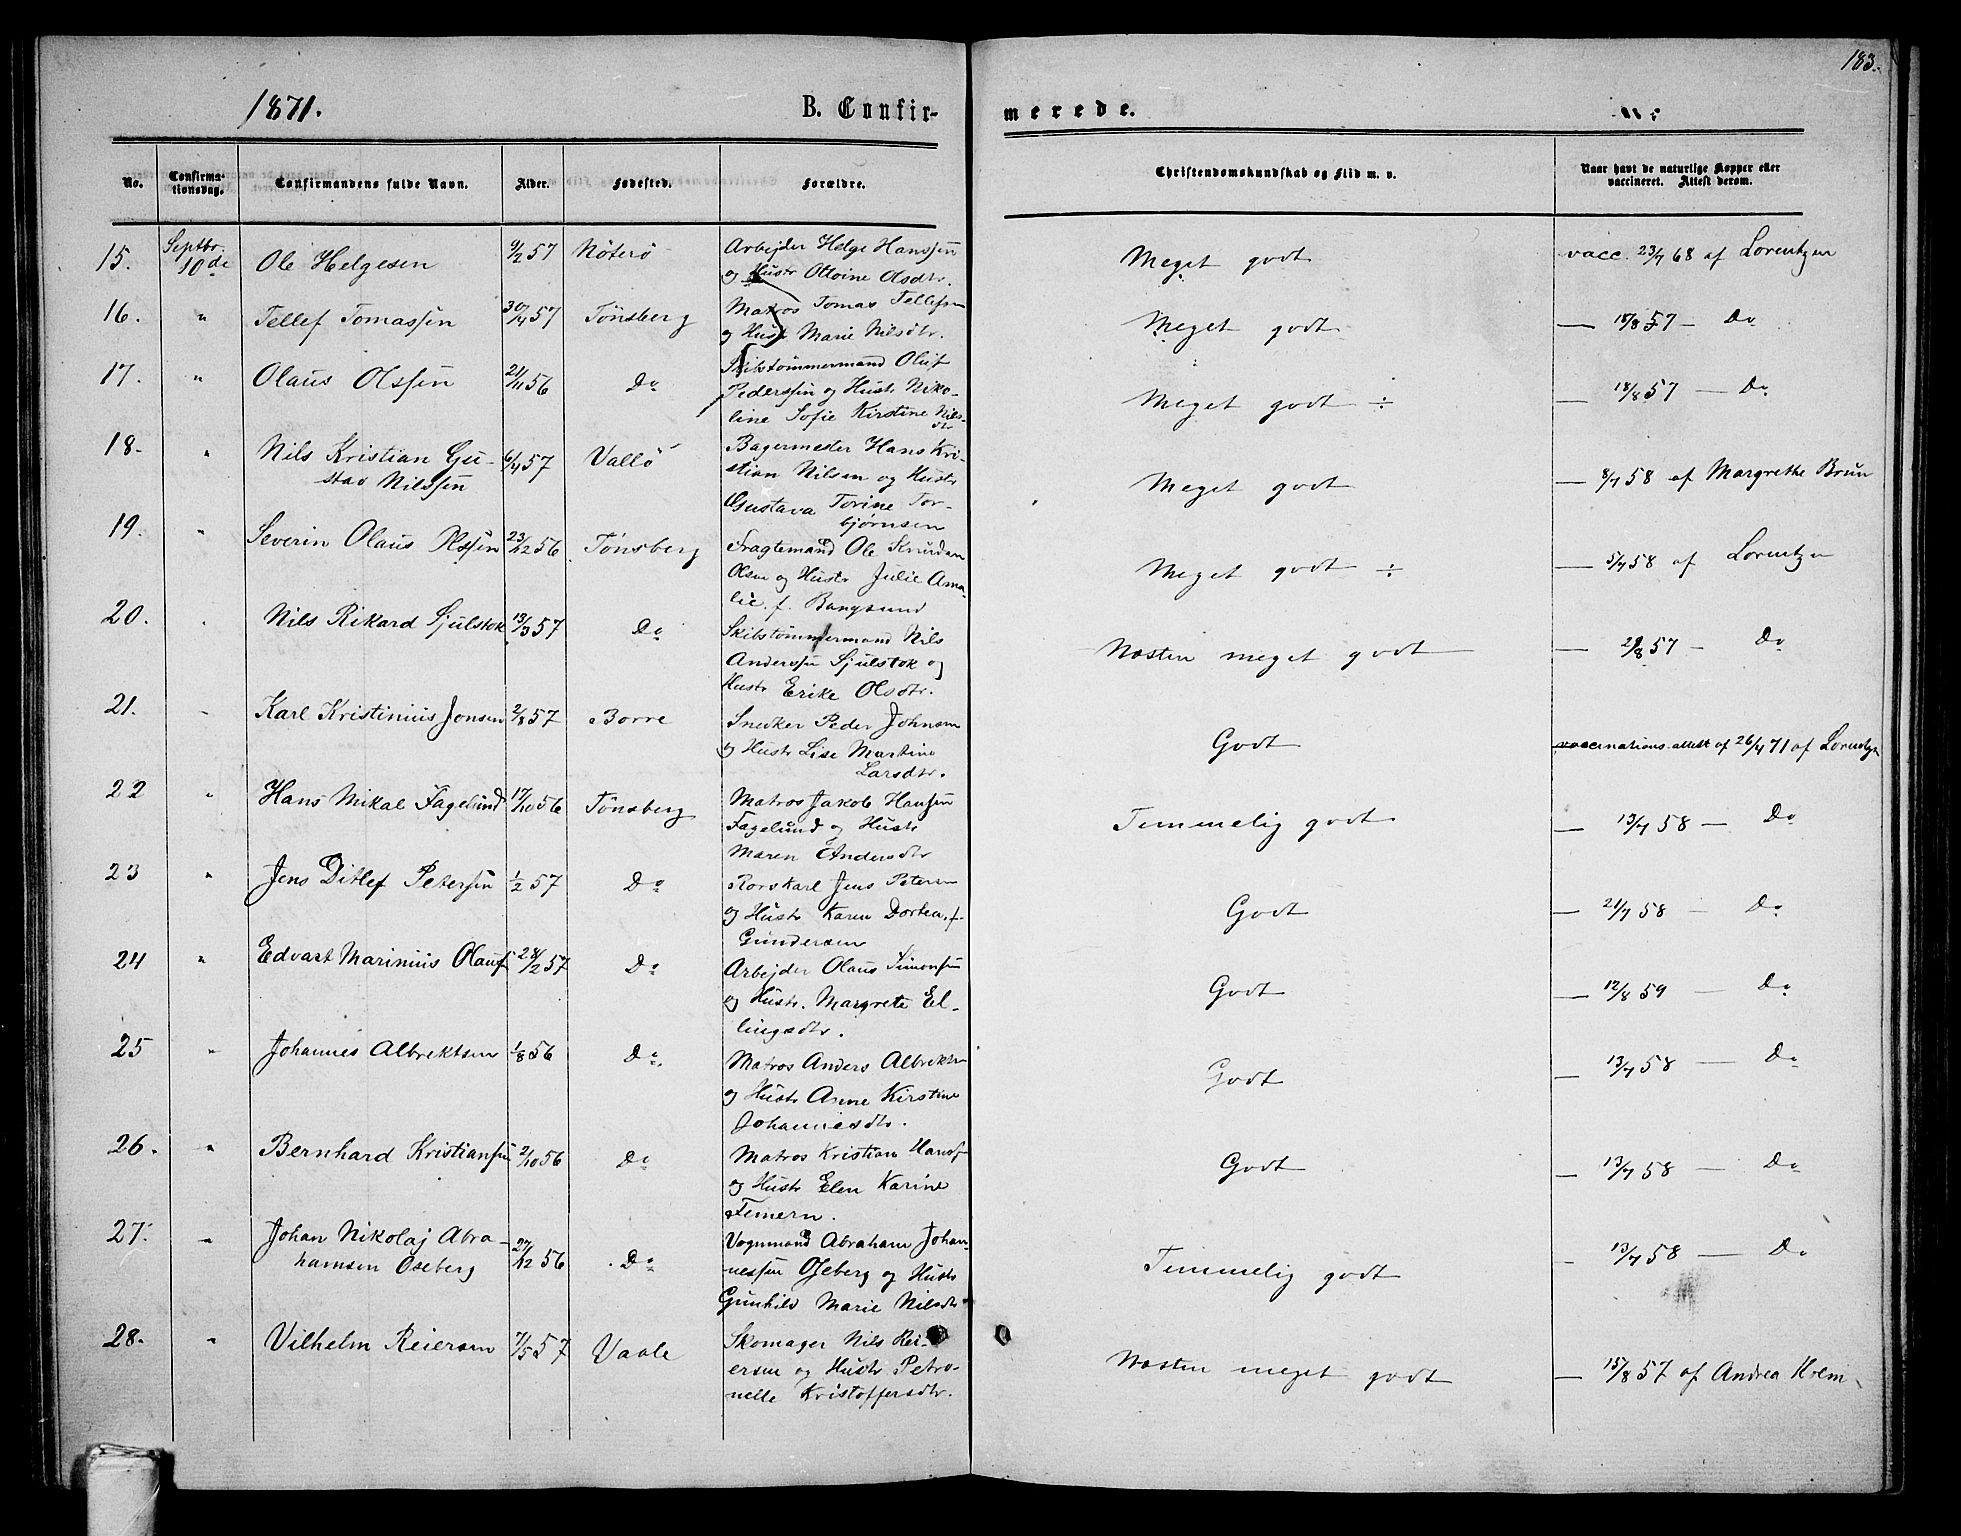 183.
1871.
B. Confir-
merede.
No.
Confirma-
tionsdag.
Confirmandens fulde Navn.
Alder.
Fødested.
Forældre.
Christendomskundskab og Flid m. v.
Naar havt de naturlige Kopper eller
vaccineret. Attest derom.
15. Septbr. 10de Ole Helgesen 9/2 57 Nöterö
Arbejder Helge Hanssen
og Hustr Ottoine Olsdtr.
Meget godt
vacc. 23/7 68 af Lorentzen
16. " Tellef Tomassen 30/4 57 Tönsberg
Matros Tomas Tellefsen
og Hustr Marie Nilsdtr.
Meget godt
— 18/8 57 — Do
17. " Olaus Olssen 21/11 56 Do
Skibstömmermand Oluf
Pederssen og Hustr Niko-
line Sofie Kirstine Nils-
dtr
Meget godt ÷
— 18/8 57 — Do
18. " Nils Kristian Gu-
stav Nilssen
6/4 57 Vallö
Bagermester Hans Kri-
stian Nilsen og Hustr
Gustava Torine Tor-
bjørnsen
Meget godt
— 8/7 58 af Margrethe Brun
19. " Severin Olaus Olssen 23/12 56 Tönsberg
Fragtemand Ole Knudsen
Olsen og Hustr Julie Ama-
lie. f. Bangsund
Meget godt ÷
— 5/7 58 af Lorentzen
20. " Nils Rikard Sjulstok 13/3 57 Do
Skibstömmermand Nils
Anderssen Sjulstok og
Hustr Erike Olsdtr.
Næsten meget godt
— 29/8 57 — Do
21. " Karl Kristinius Jonsen 2/8 57 Borre
Snedker Peder Johnsen
og Hustr Lise Martine
Larsdtr.
Godt
vaccinations-attest af 26/4 71 af Lorentzen
22 " Hans Mikal Fagelund 17/10 56 Tönsberg
Matros Jakob Hanssen
Fagelund og Hustr
Maren Andersdtr
Temmelig godt
— 13/7 58 — Do
23 " Jens Ditlef Petersen 1/2 57 Do
Rorskarl Jens Petersen
og Hustr Karen Dortea. f.
Gundersen
Godt
— 21/7 58 — Do
24 " Edvart Marinius Olaus 28/2 57 Do
Arbejder Olaus Simonsen
og Hustr. Margrete El-
lingsdtr.
Godt
— 12/8 59 — Do
25 " Johannes Albrektsen 1/8 56 Do.
Matros Anders Albrektsen
og Hustr Anne Kirstine
Johannesdtr.
Godt
— 13/7 58 — Do
26. " Bernhard Kristiansen 2/10 56 Do
Matros Kristian Hans
og Hustr Elen Karine
Femern.
Godt
— 13/7 58 — Do
27. " Johan Nikolaj Abra-
hamsen Oseberg
27/12 56 Do
Vognmand Abraham Johan-
nessen Oseberg og Hustr
Gunhild Marie Nilsdtr
Temmelig godt
— 13/7 58 — Do
28. " Vilhelm Reiersen 7/5 57 Vaale
Skomager Nils Rei-
ersen og Hustr Petro-
nelle Kristoffersdtr.
Næsten meget godt
— 15/8 57 af Andrea Holm